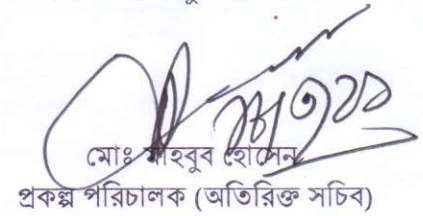 মোঃ মাহবুব হোসেন
প্রকল্প পরিচালক (অতিরিক্ত সচিব)